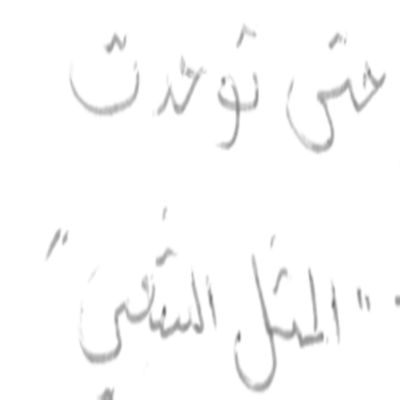 حتى توحدت
. " المثل الشعبي "